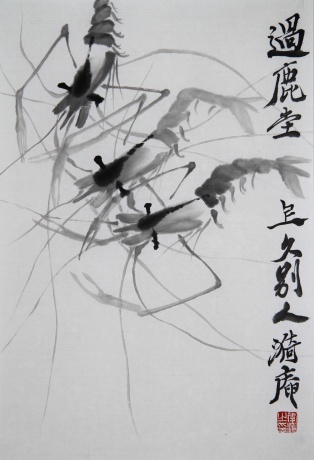 過鹿堂 上久别人漪庵